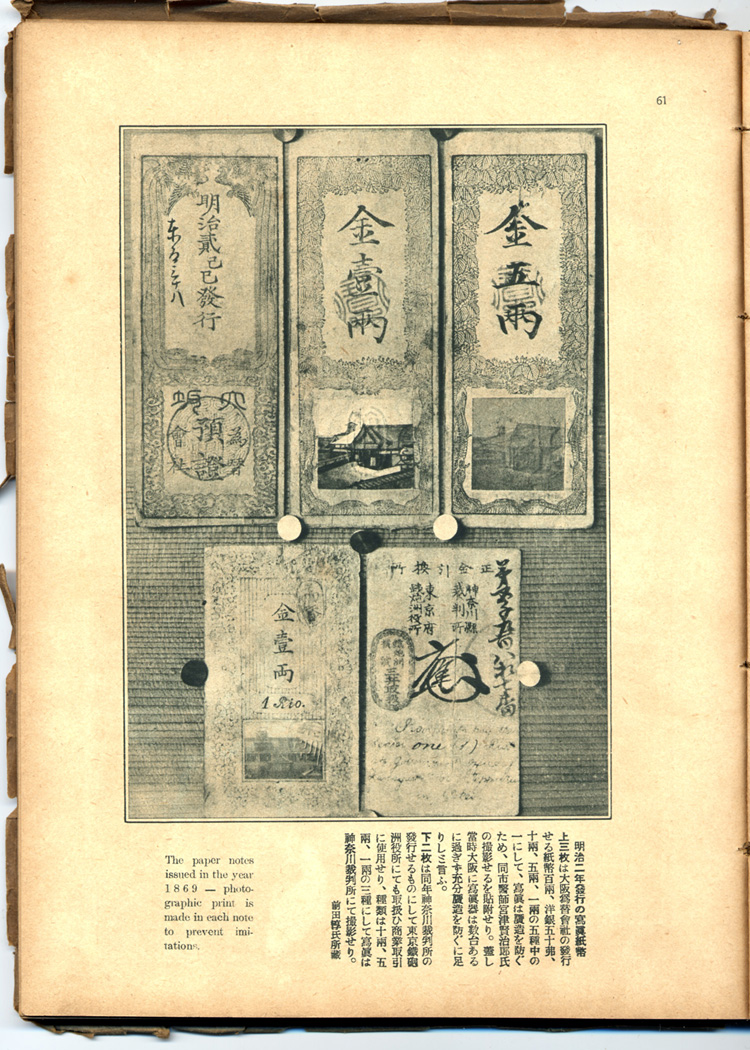 61
明治貳己巳發行
為替
會社
預
證
金壹兩
金五兩
金壹両
1 Rio.
正金引換所
神奈川縣
裁判所
東京府
one (1)
明治二年發行の寫眞紙幣
上三枚は大阪爲替會社の發行
せる紙幣百兩、洋銀五十弗、
十兩、五兩、一兩の五種中の
一にして、寫眞は贋造を防ぐ
ため、同市醫師宮津賢治郎氏
の撮影せるを貼附せり。蓋し
當時大阪に寫眞器は數台ある
に過ぎず充分贋造を防ぐに足
りしミ言ふ。
下二枚は同年神奈川裁判所の
發行せるものにして東京鐵砲
洲役所にても取扱ひ商業取引
に使用せり、種類は十兩、五
兩、一兩の三種にして寫眞は
神奈川裁判所にて撮影せり。
前田惇氏所藏
The paper notes
issued in the year
1869 — photo-
graphic print is
made in each note
to prevent imi-
tations.